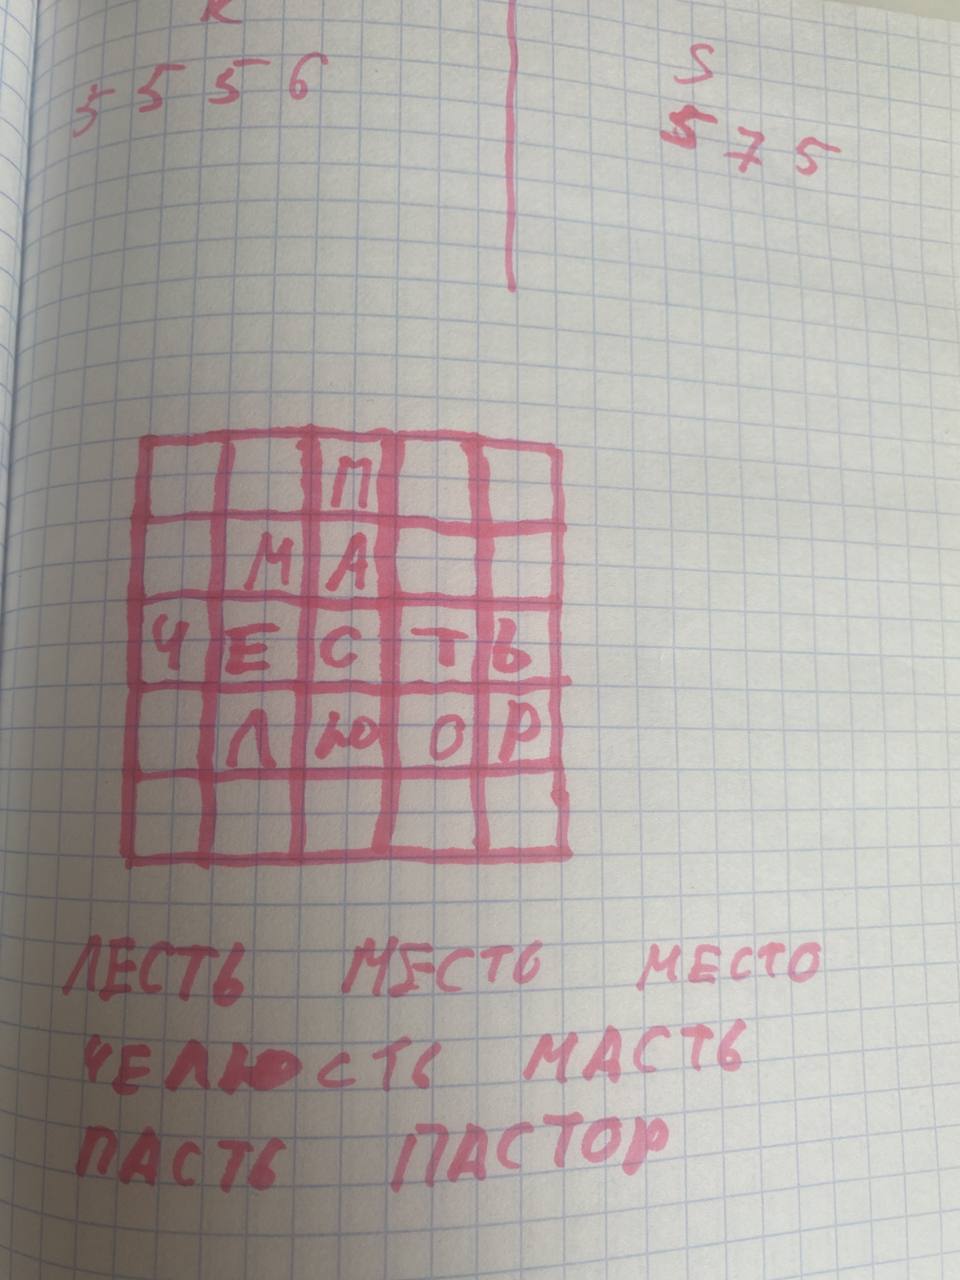 К
5 5 5 6
S
5 7 5
П
М А
Ч Е С Т Ь
Л Ю О Р
ЛЕСТЬ МЕСТЬ МЕСТО
ЧЕЛЮСТЬ МАСТЬ
ПАСТЬ ПАСТОР